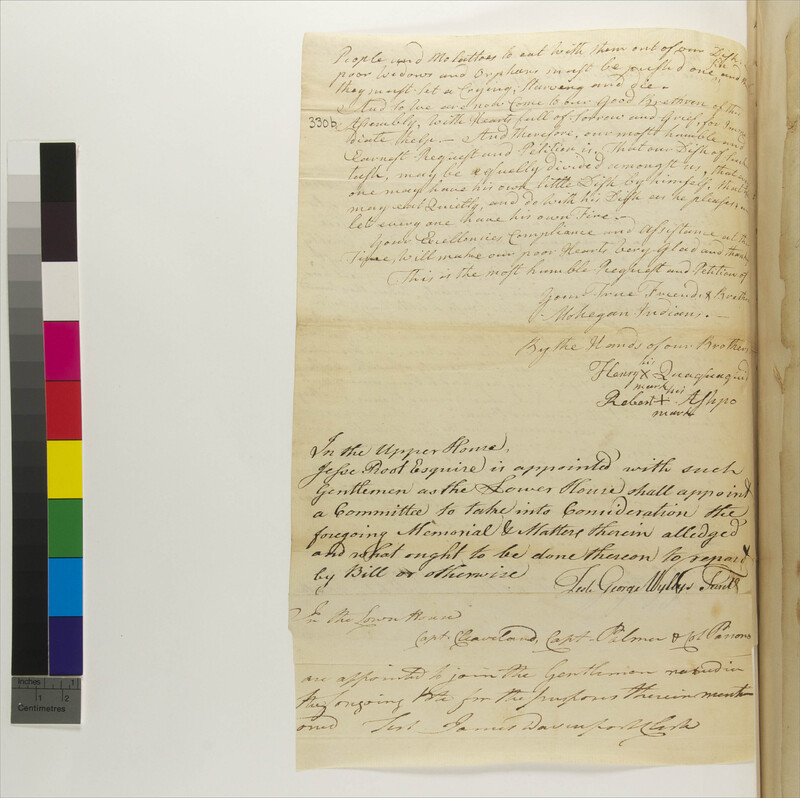 People and Molattoes to eat with them out of our Dish
poor Widows and Orphans must be pushed one and
they must Set a Crying, Starving and die.
And so We are now Come to our Good Brethren of the
330b
Assembly, With Hearts full of Sorrow and Grief, for
diate help — And therefore, our most humble and
Earnest Request and Petition is, That our Dish of
tush, may be equally divided amongst us, that
one may have his own little Dish by himself, that he
may eat Quietly, and do with his Dish as he pleases,
let every one have his own Fire.
Your Excellencies Compliance and Assistance at
Time, will make our poor Hearts very Glad and
This is the most humble Request and Petition of
Your True Freinds & Breth
Mohegan Indians. —
By the Hands of our Brothers
his
Henry X Quaquaquid
mark his
Robert + Ashpo
mark
In the Upper House,
Jesse Root Esquire is appointed with such
Gentlemen as the Lower House shall appoint
a Committe to take into Consideration the
foregoing Memorial & Matters therein alledged
and what ought to be done thereon to report
by Bill or otherwise
Test. George Wyllys Secret.
In the Lower House
Capt. Cleaveland, Capt. Palmer & Col Parsons
are appointed to join the Gentlemen named in
the foregoing Vote for the purposes therein menti
oned Test James Davenport Clerk
Inches 1
1 2
Centimetres